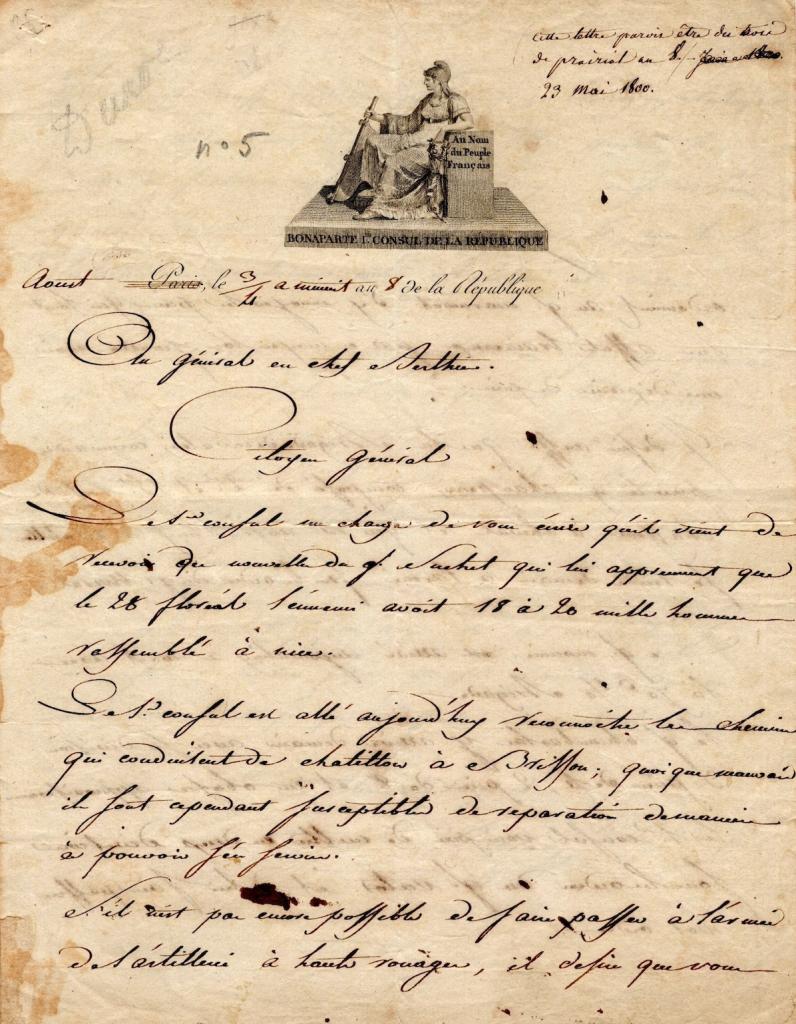 cette lettre paroit être du trois
de prairial an 8/
23 mai 1800.
n° 5
Au Nom
du Peuple
Français
BONAPARTE 1er CONSUL DE LA RÉPUBLIQUE
Aoust Paris, le 3/4 a minuit an 8 de la République
Au général en chef Berthier.
Citoyen Général
Le 1er consul me charge de vous écrire qu'il vient de
recevoir des nouvelles du gl Suchet qui lui apprennent que
le 28 floréal l'ennemi avoit 18 à 20 mille hommes
rassemblé à nice.
Le 1er consul est allé aujourd'huy reconnoître les chemins
qui conduisent de chatillon à Brisson; quoique mauvais
ils sont cependant susceptibles de reparation de maniere
à pouvoir s'en servir.
S'il n'est pas encore possible de faire passer à l'armée
de l'artillerie à hauts rouages, il desire que vous